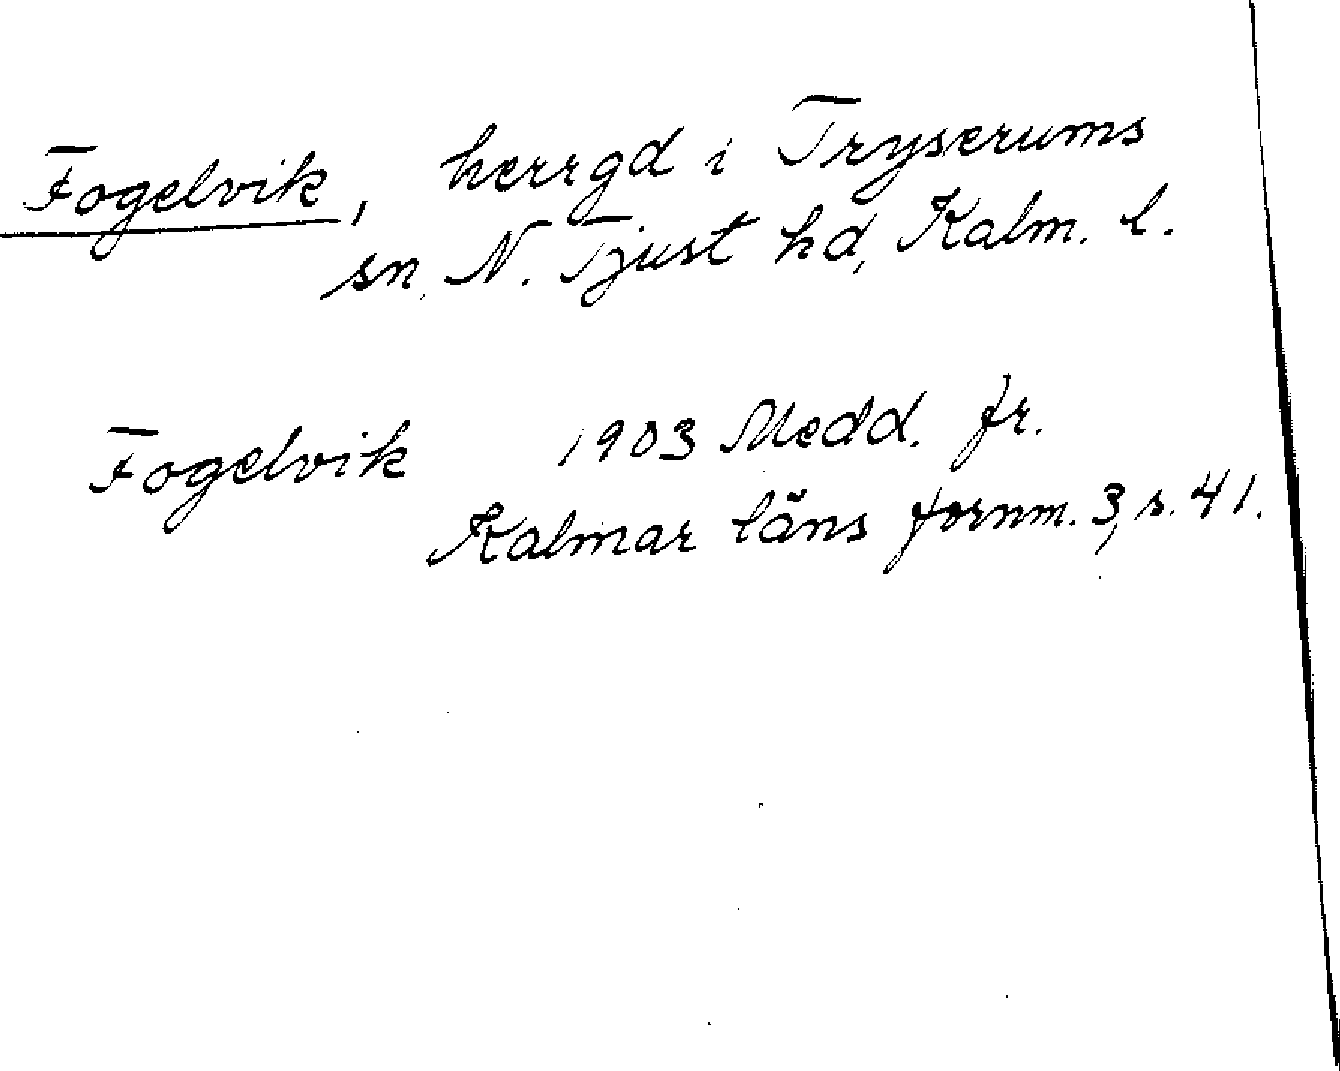 Fogelvik, herrgd i Tryserums
sn, N. Tjust hd, Kalm. l.
Fogelvik 1903 Medd. fr.
Kalmar läns fornm. 3, s. 41.